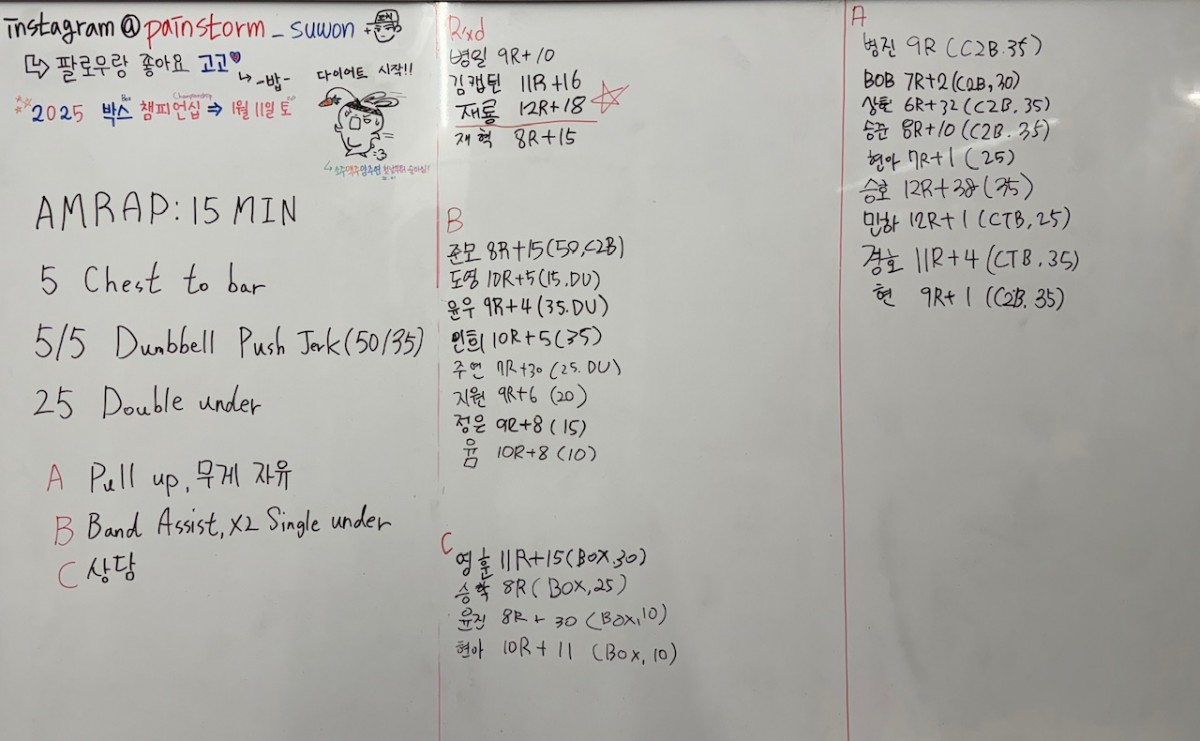 instagram@painstorm_suwon +
팔로우랑 좋아요 고고
-밥-
다이어트 시작!!
2025 박스 챔피언십 ⇒ 1월 11일 토
Box
Championship
AMRAP: 15 MIN
5 Chest to bar
5/5 Dumbbell Push Jerk (50/35)
25 Double under
A Pull up, 무게 자유
B Band Assist, X2 Single under
C 상담
R'xd
병일 9R+10
김캡틴 11R+16
재룡 12R+18
재혁 8R+15
B
준모 8R+15(50,C2B)
도영 10R+5(15.DU)
윤우 9R+4(35.DU)
인희 10R+5(35)
주연 7R+30(25.DU)
지원 9R+6 (20)
정은 9R+8 (15)
윰 10R+8 (10)
C
영훈 11R+15(BOX.30)
승학 8R(BOX,25)
윤진 8R+30 (BOX,10)
현아 10R+11 (BOX,10)
A
병진 9R (C2B.35)
BOB 7R+2(C2B,30)
상훈 6R+32(C2B,35)
승준 8R+10(C2B.35)
현아 7R+1(25)
승호 12R+38(35)
민하 12R+1(CTB,25)
경호 11R+4(CTB.35)
현 9R+1 (C2B.35)